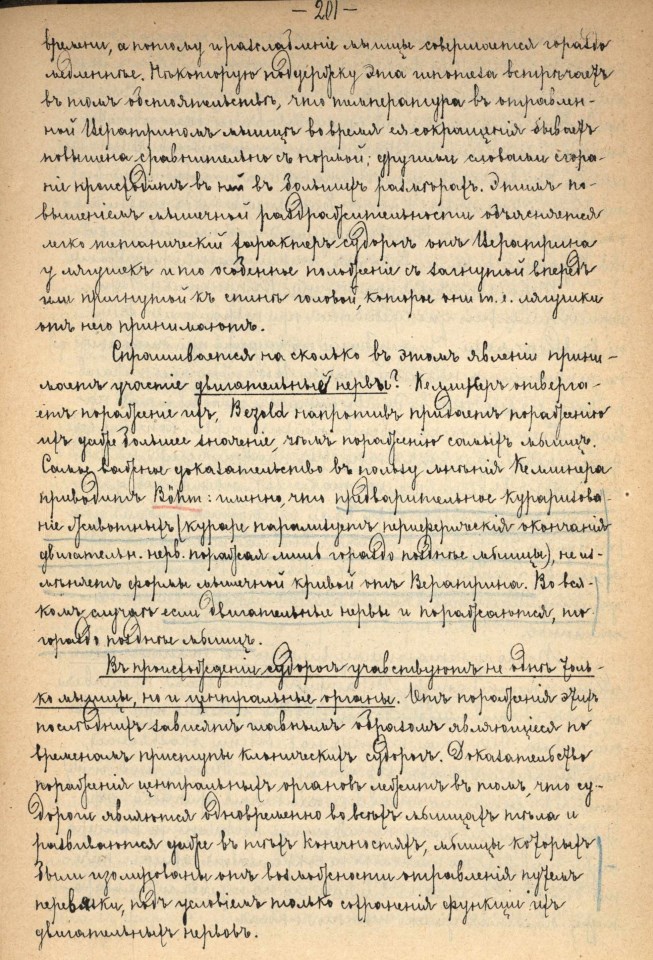 — 201 —
времени, а потому и разслабленіе мышцы совершается гораздо
медленнѣе. Нѣкоторую поддержку эта гипотеза встрѣчаетъ
въ томъ обстоятельствѣ, что температура въ отравлен-
ной Вератриномъ мышцѣ во время ея сокращенія бываетъ
повышена сравнительно съ нормой; другими словами сгора-
ніе происходитъ въ ней въ большихъ размѣрахъ. Этимъ по-
вышеніемъ мышечной раздражительности объясняется
легко тетаническій характеръ судорогъ отъ Вератрина
у лягушекъ и то особенное положеніе съ загнутой впередъ
или пригнутой къ спинѣ головой, которое они т. е. лягушки
отъ него принимаютъ.
Спрашивается на сколько въ этомъ явленіи прини-
маетъ участіе двигательные нервы? отверга-
етъ пораженіе ихъ, Bezold напротивъ придаетъ пораженію
ихъ даже большее значеніе, чѣмъ пораженію самыхъ мышцъ.
Самое важное доказательство въ пользу мнѣнія
приводитъ Böhm: именно, что предварительное кураризова-
ніе животныхъ (кураре парализуетъ периферическія окончанія
двигательн. нерв. поражая лишь гораздо позднѣе мышцы), не из-
мѣняетъ формы мышечной кривой отъ Вератрина. Во вся-
комъ случаѣ если двигательные нервы и поражаются, то
гораздо позднѣе мышцъ.
Въ происхожденіе судорогъ учавствуютъ не однѣ толь-
ко мышцы, но и центральные органы. Отъ пораженія этихъ
послѣднихъ зависятъ главнымъ образомъ являющіеся по
временамъ приступы клоническихъ судорогъ. Доказательство
пораженія центральныхъ органовъ лежитъ въ томъ, что су-
дороги являются одновременно во всѣхъ мышцахъ тѣла и
развиваются даже въ тѣхъ конечностяхъ, мышцы которыхъ
были изолированы отъ возможности отравленія путемъ
перевязки, подъ условіемъ только сохраненія функціи ихъ
двигательныхъ нервовъ.